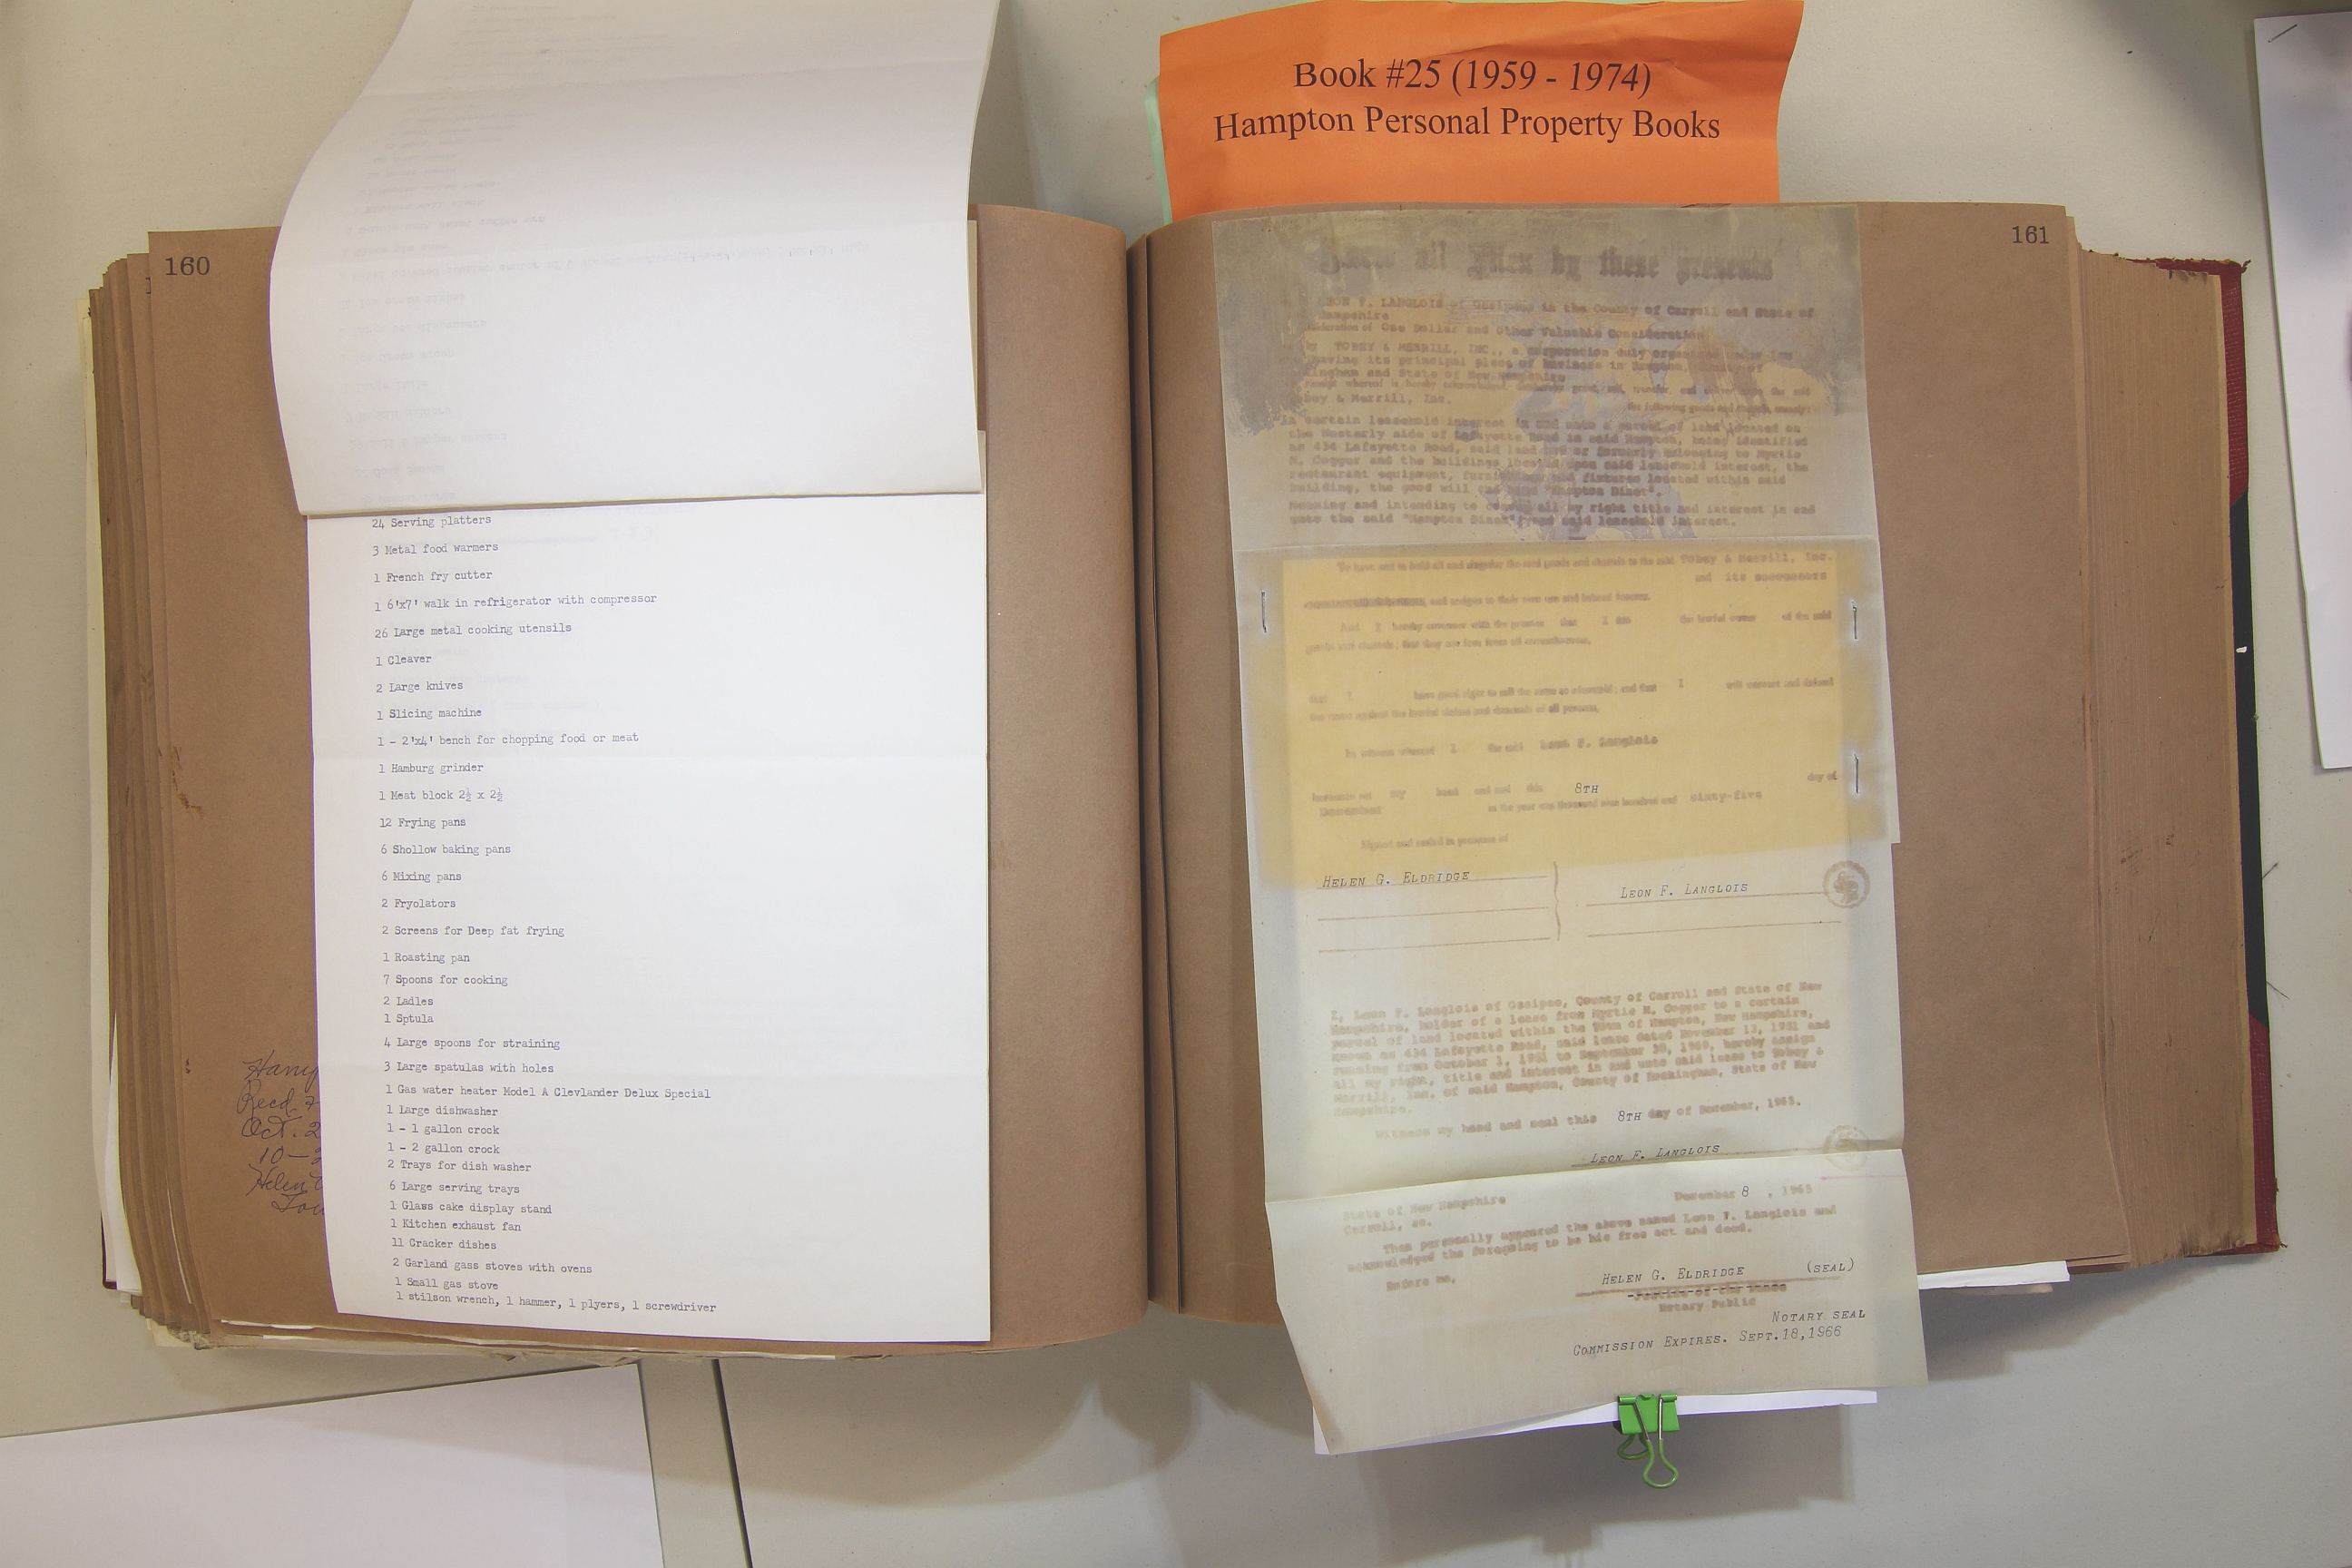 Book #25 (1959 - 1974)
Hampton Personal Property Books
160
24 Serving platters
3 Metal food warmers
1 French fry cutter
1 6'x7' walk in refrigerator with compressor
26 Large metal cooking utensils
1 Cleaver
2 Large knives
1 Slicing machine
1 - 2'x4' bench for chopping food or meat
1 Hamburg grinder
1 Meat block 2½ x 2½
12 Frying pans
6 Shollow baking pans
6 Mixing pans
2 Fryolators
2 Screens for Deep fat frying
1 Roasting pan
7 Spoons for cooking
2 Ladles
1 Sptula
4 Large spoons for straining
3 Large spatulas with holes
1 Gas water heater Model A Clevlander Delux Special
1 Large dishwasher
1 - 1 gallon crock
1 - 2 gallon crock
2 Trays for dish washer
6 Large serving trays
1 Glass cake display stand
1 Kitchen exhaust fan
11 Cracker dishes
2 Garland gass stoves with ovens
1 Small gas stove
1 stilson wrench, 1 hammer, 1 plyers, 1 screwdriver
Recd
Oct. 2
10—
Helen
161
Know all Men by these presents
LEON F. LANGLOIS of Ossipee in the County of Carroll and State of
Hampshire
One Dollar and Other Valuable Consideration
by TOBEY & MERRILL, INC., a corporation duly organized under law
having its principal place of business in Hampton, County of
ingham and State of New Hampshire
receipt whereof is hereby acknowledged, grant, sell, transfer, and deliver unto the said
bey & Merrill, Inc.
the following goods and chattels, namely:
certain leasehold interest in and unto a parcel of land located on
the Westerly side of Lafayette Road in said Hampton, being identified
as 434 Lafayette Road, said land now or formerly belonging to Myrtie
M. Copper and the buildings located upon said leasehold interest, the
restaurant equipment, furnishings and fixtures located within said
building, the good will and name "Hampton Diner".
Meaning and intending to convey all my right title and interest in and
unto the said "Hampton Diner" and said leasehold interest.
To have and to hold all and singular the said goods and chattels to the said Tobey & Merrill, Inc.
and its successors
and assigns to their own use and behoof forever.
And I hereby covenant with the grantee that I am the lawful owner of the said
goods and chattels; that they are free from all encumbrances,
that I have good right to sell the same as aforesaid; and that I will warrant and defend
the same against the lawful claims and demands of all persons.
In witness whereof I the said Leon F. Langlois
hereunto set my hand and seal this 8TH day of
December in the year one thousand nine hundred and sixty-five
Signed and sealed in presence of
HELEN G. ELDRIDGE
LEON F. LANGLOIS
I, Leon F. Langlois of Ossipee, County of Carroll and State of New
Hampshire, holder of a lease from Myrtie M. Copper to a certain
parcel of land located within the Town of Hampton, New Hampshire,
known as 434 Lafayette Road, said lease dated November 13, 1951 and
running from October 1, 1951 to September 30, 1960, hereby assign
all my right, title and interest in and unto said lease to Tobey &
Merrill, Inc. of said Hampton, County of Rockingham, State of New
Hampshire.
Witness my hand and seal this 8TH day of December, 1965.
LEON F. LANGLOIS
State of New Hampshire
Carroll, ss.
December 8 , 1965
Then personally appeared the above named Leon F. Langlois and
acknowledged the foregoing to be his free act and deed.
Before me,
HELEN G. ELDRIDGE (SEAL)
Justice of the Peace
Notary Public
NOTARY SEAL
COMMISSION EXPIRES. SEPT.18,1966